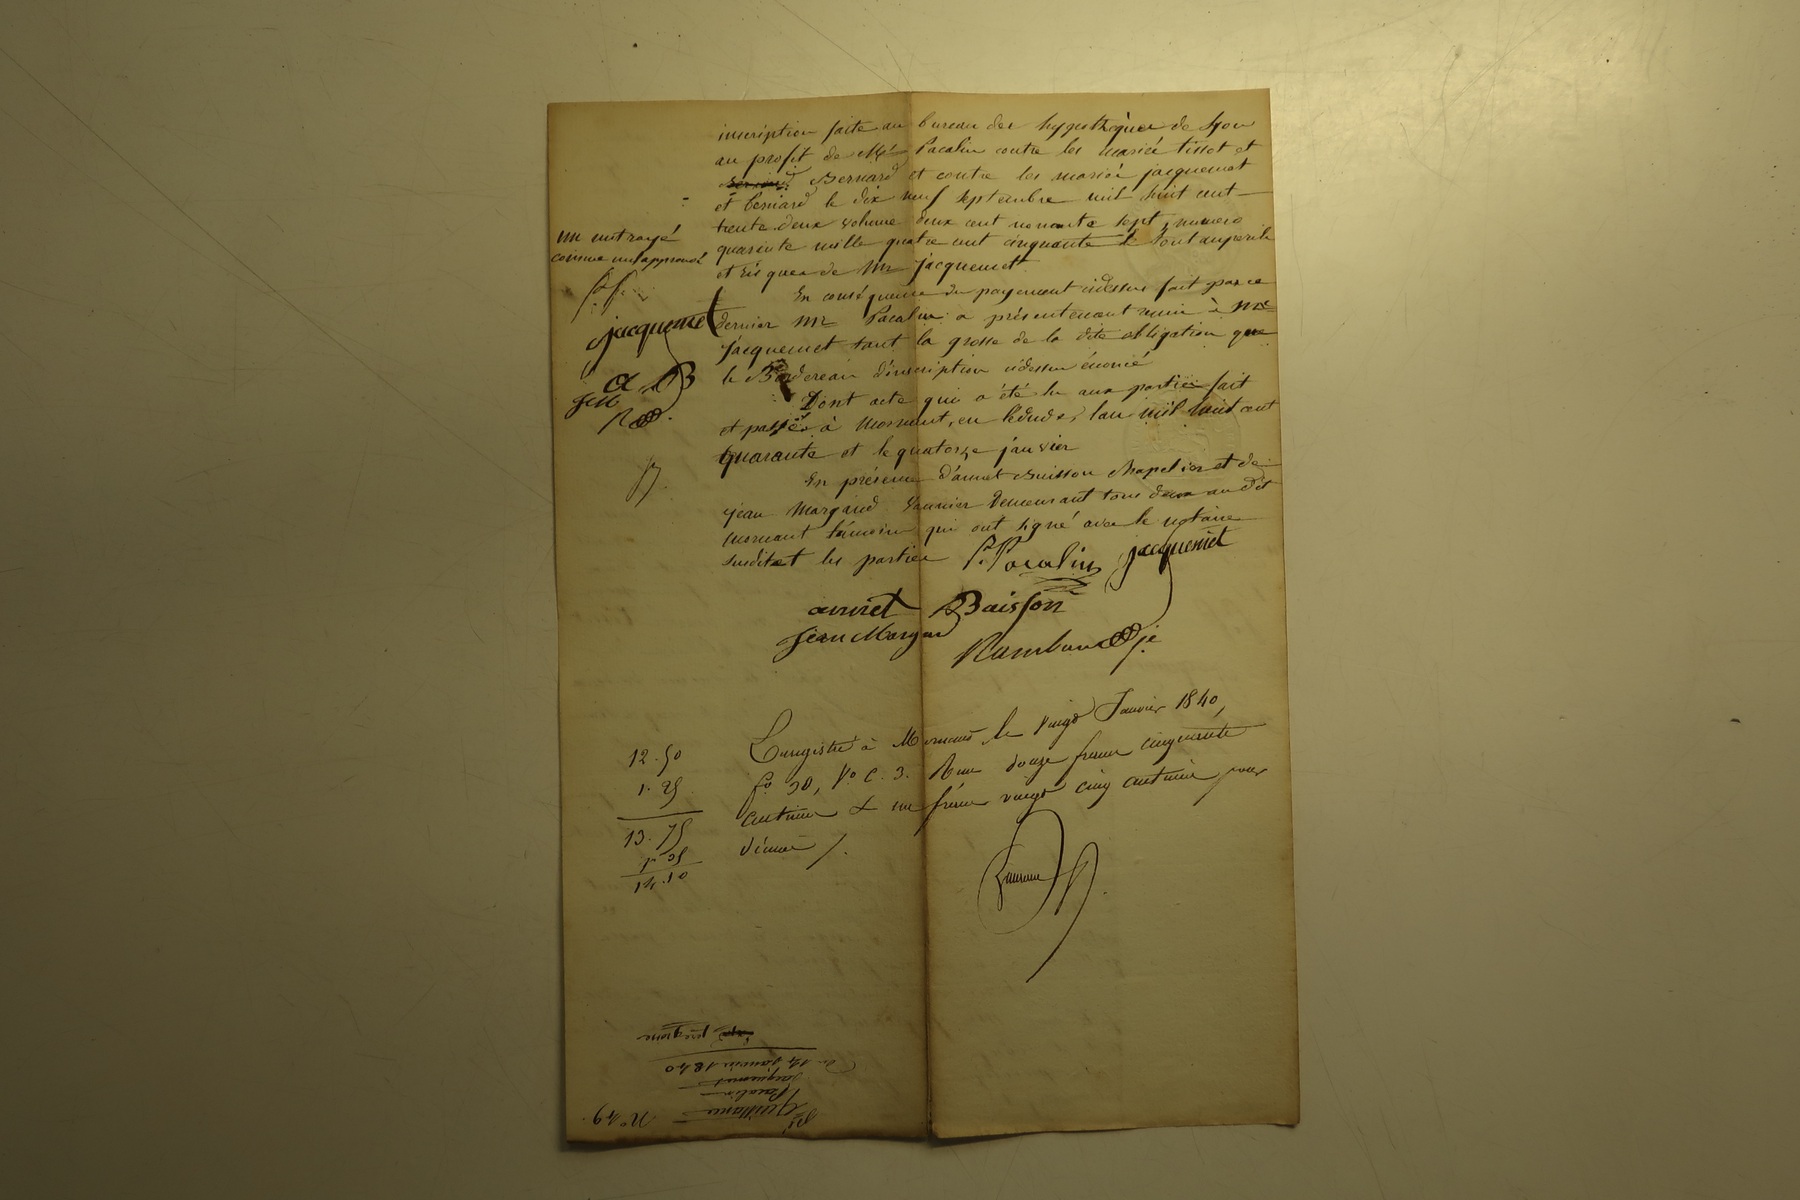 inscription faite au bureau des hypothèques de Lyon
au profit de Mr Pacalin contre les mariés tissot et
Bernard et contre les mariés jacquemet
et bernard le dix neuf septembre mil huit cent
trente deux volume deux cent nonante sept, numero
quarante mille quatre cent cinquante le tout au perils
et risques de Mr jacquemet
En conséquence du payement cidessus fait par ce
dernier Mr Pacalin a présentement remis à Mr
jacquemet tant la grosse de la dite obligation que
le Bordereau d'inscription cidessus énoncé
Dont acte qui a été lu aux parties fait
et passé à Mornant, en l'étude, l'an mil huit cent
quarante et le quatorze janvier
En présence d'annet Buisson chapelier et de
jean Margand demeurant tous deux au dit
Mornant témoins qui ont signé avec le notaire
susdit et les parties P. Pacalin jacquemet
annet Buisson
jean Margand
Rambaud
un mot rayé
comme nul approuvé
jacquemet
a B
Enregistré à Mornant le vingt Janvier 1840,
fo 30, Vo C. 3. Reçu douze francs cinquante
centimes & un franc vingt cinq centimes pour
décime /.
12.50
1.25
13.75
14.10
No 49
Quittance
Pacalin
Jacquemet
Du 14 Janvier 1840